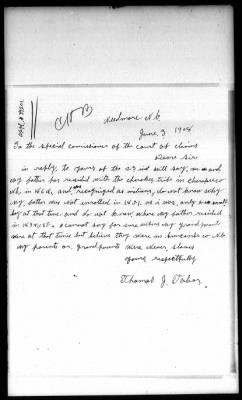 Needmore N.C.
June, 3 1908
To the special comissioner of the court of claims
Deare sir
in reply, to yours of the 29 inst will say,
my father has resided with the cherokee tribe in cherokee co
N.C, and was recognized as indians, do not know why
my, father was not enrolled in 1851, as i was, only a small
boy at that time and do not know where my father resided
in 1835, I cannot say for sure where my grandparents
were at that time but believe they were in buncombe co N.C
my parents or, grandparents were never, slaves
yours, respectfully
Thomas J. Tabor